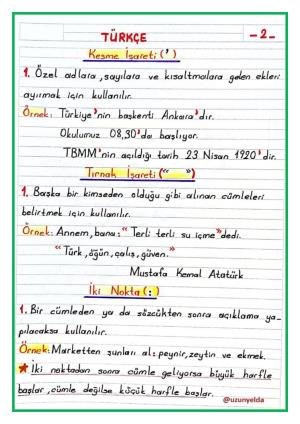 TÜRKÇE -2-
Kesme İşareti (')
1. Özel adlara, sayılara ve kısaltmalara gelen ekleri
ayırmak için kullanılır.
Örnek: Türkiye'nin başkenti Ankara'dır.
Okulumuz 08,30'da başlıyor.
TBMM'nin açıldığı tarih 23 Nisan 1920'dir.
Tırnak İşareti (" ")
1. Başka bir kimseden olduğu gibi alınan cümleleri
belirtmek için kullanılır.
Örnek: Annem, bana: "Terli terli su içme" dedi.
"Türk, öğün, çalış, güven."
Mustafa Kemal Atatürk
İki Nokta (:)
1. Bir cümleden ya da sözcükten sonra açıklama ya-
pılacaksa kullanılır.
Örnek: Marketten şunları al: peynir, zeytin ve ekmek.
★ İki noktadan sonra cümle geliyorsa büyük harfle
başlar, cümle değilse küçük harfle başlar.
@uzunyelda